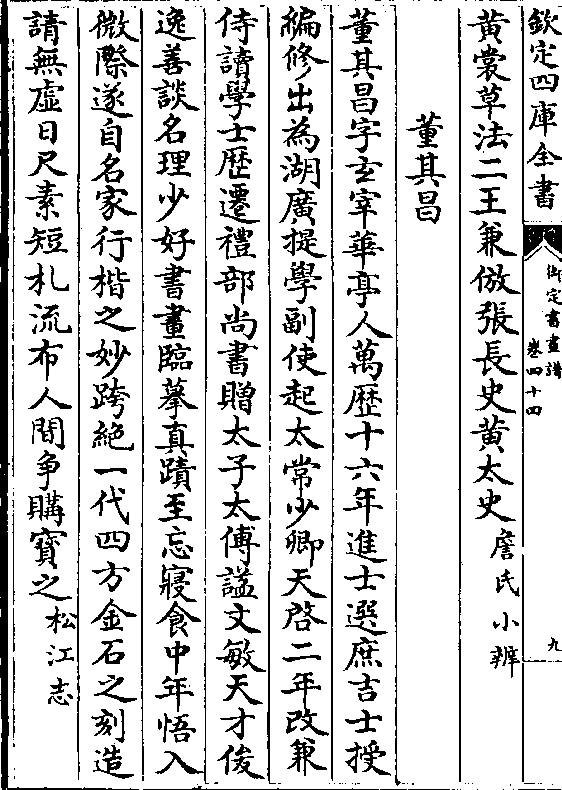 欽定四庫全書
御定書畫譜
卷四十四
九
黃裳草法二王兼倣張長史黃太史詹氏小辨
董其昌
董其昌字玄宰華亭人萬歷十六年進士選庶吉士授
編修出為湖廣提學副使起太常少卿天啓二年改兼
侍讀學士歷遷禮部尚書贈太子太傅謚文敏天才俊
逸善談名理少好書畫臨摹真蹟至忘寢食中年悟入
微際遂自名家行楷之妙跨絕一代四方金石之刻造
請無虛日尺素短札流布人間爭購寶之松江志